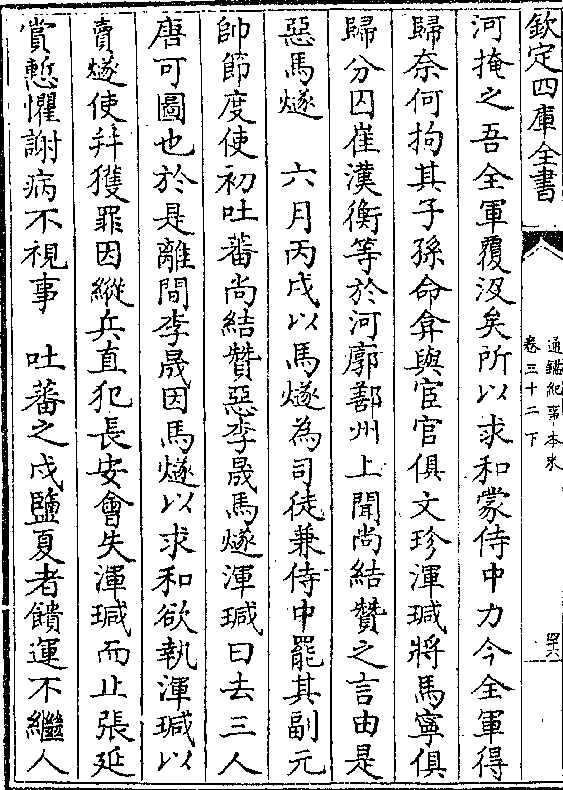 欽定四庫全書
通鑑紀事本末
卷三十二下
四六
河掩之吾全軍覆沒矣所以求和蒙侍中力今全軍得
歸奈何拘其子孫命弇與宦官俱文珍渾瑊將馬寧俱
歸分囚崔漢衡等於河廓鄯州上聞尚結贊之言由是
惡馬燧　六月丙戍以馬燧為司徒兼侍中罷其副元
帥節度使初吐蕃尚結贊惡李晟馬燧渾瑊曰去三人
唐可圖也於是離間李晟因馬燧以求和欲執渾瑊以
賣燧使并獲罪因縱兵直犯長安會失渾瑊而止張延
賞慙懼謝病不視事　吐蕃之戍鹽夏者饋運不繼人